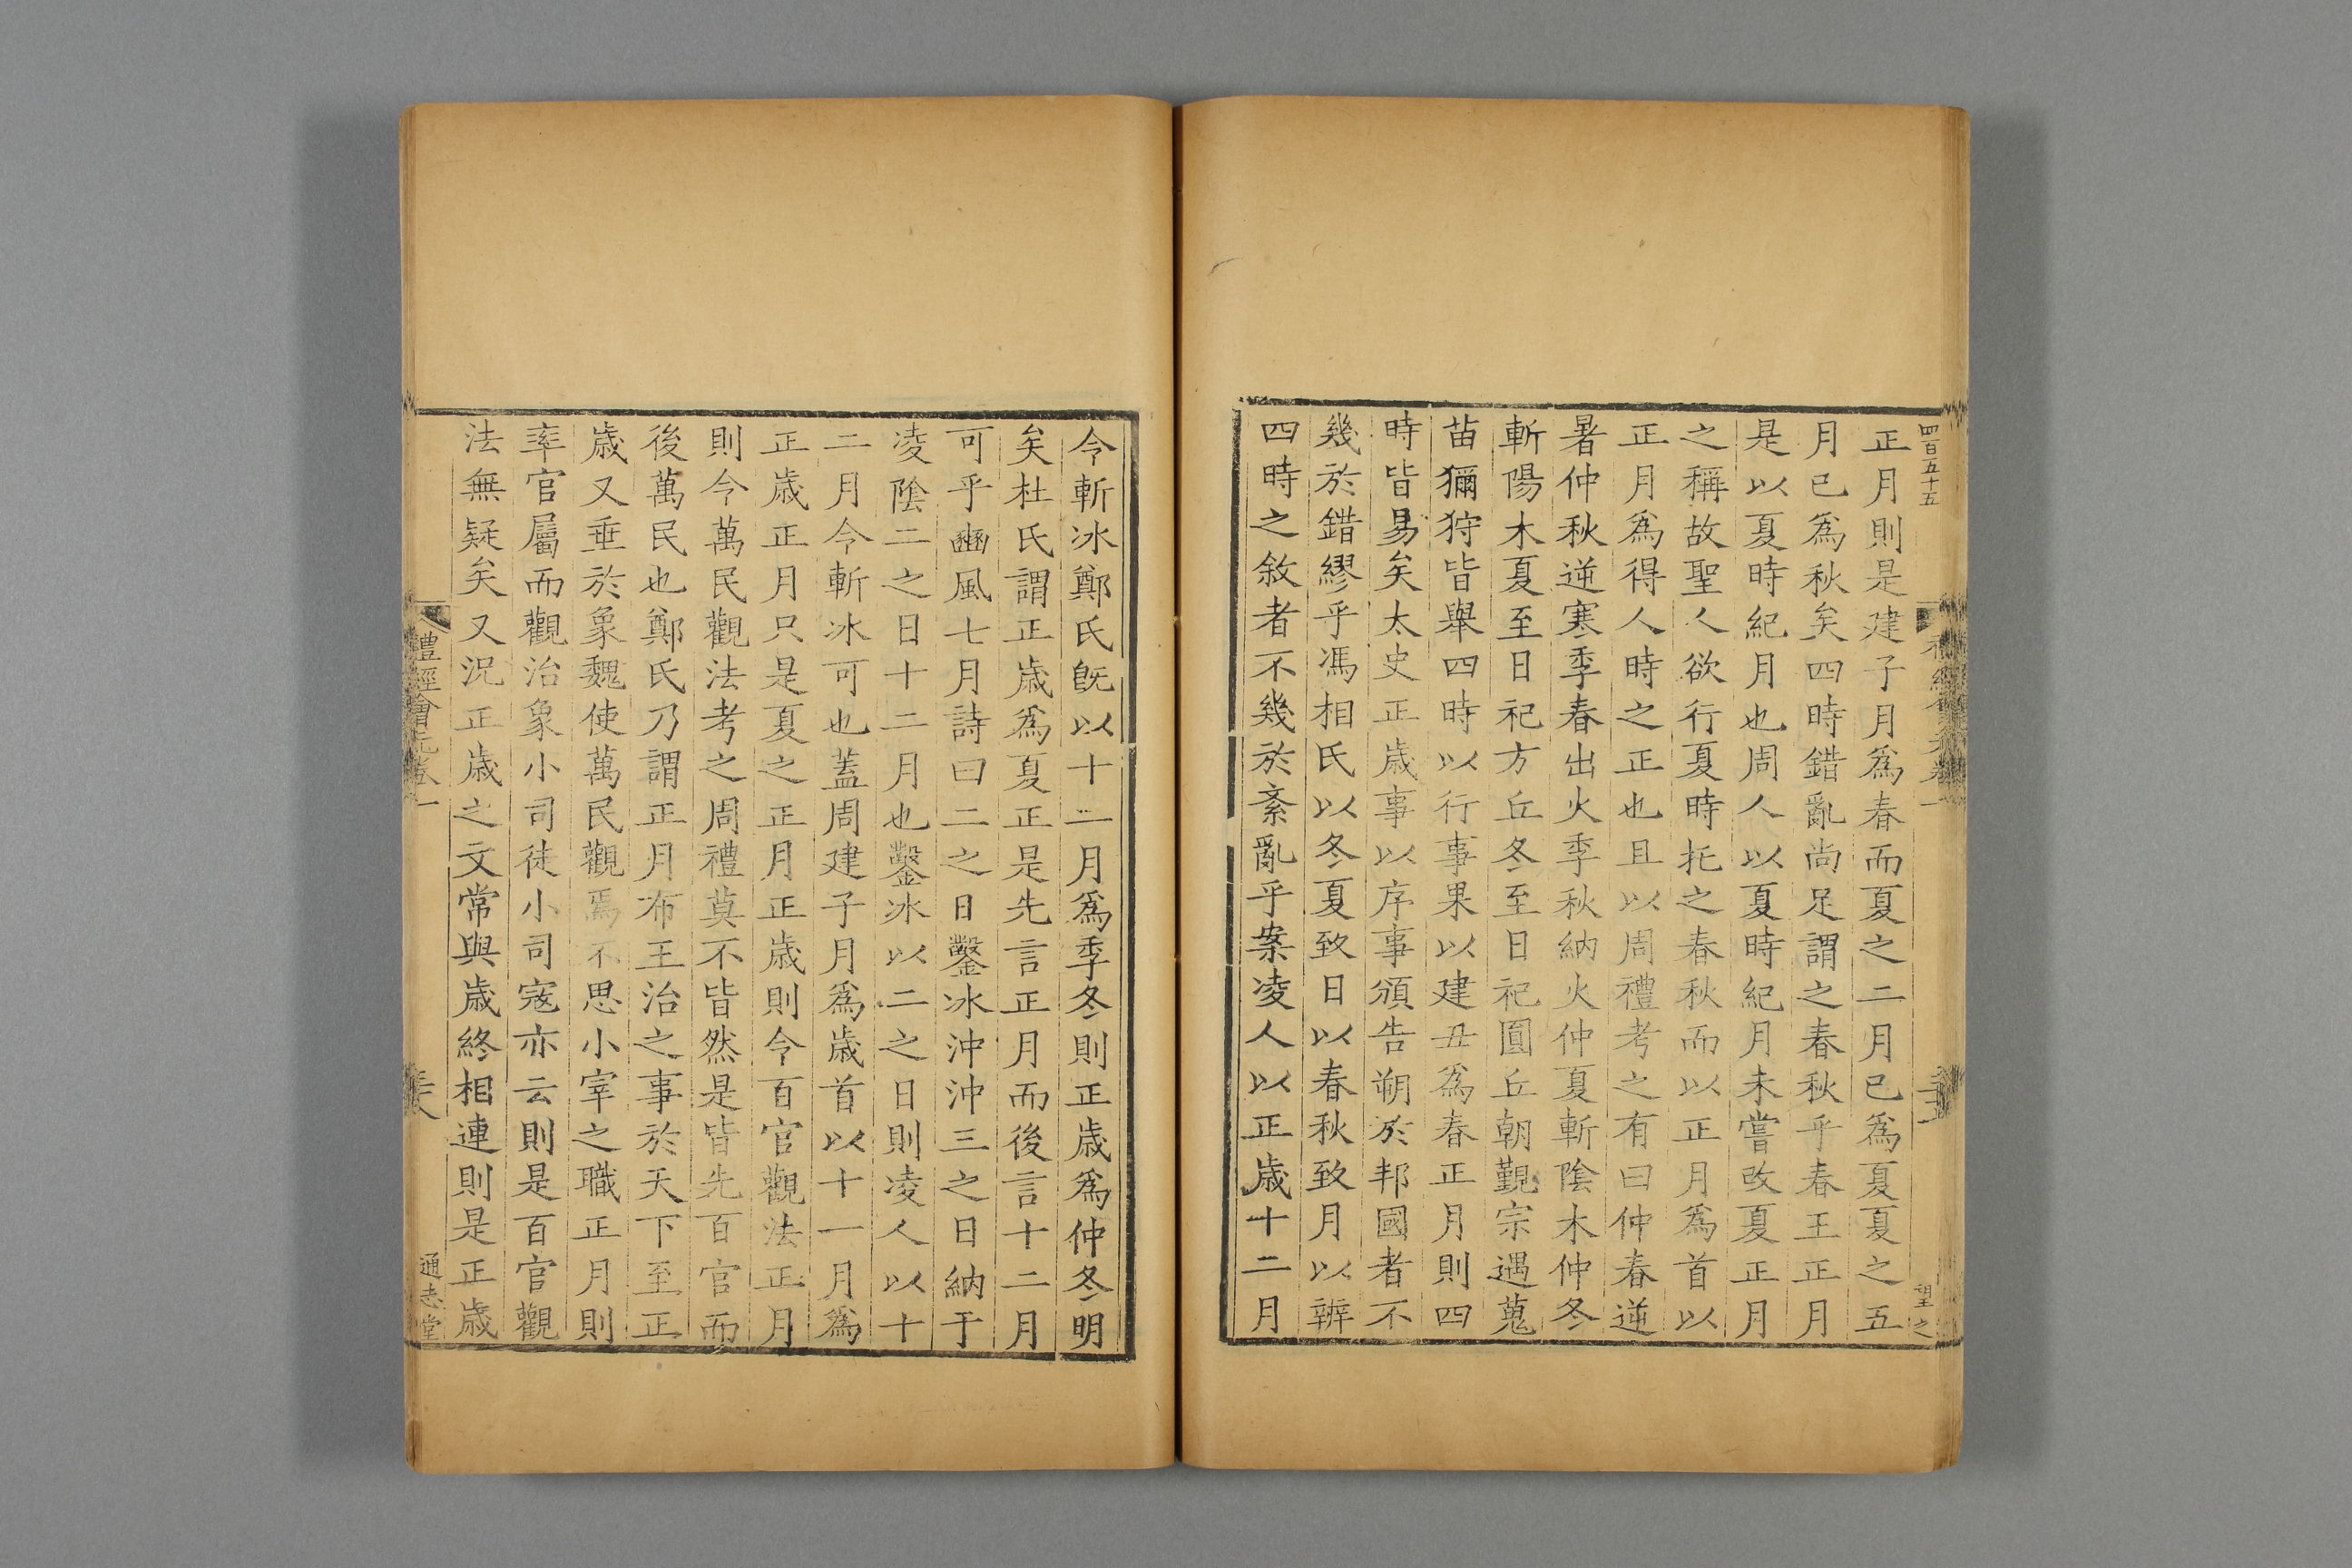 四百五十五
正月則是建子月爲春而夏之二月已爲夏夏之五
月已爲秋矣四時錯亂尚足謂之春秋乎春王正月
是以夏時紀月也周人以夏時紀月未嘗改夏正月
之稱故聖人欲行夏時托之春秋而以正月爲首以
正月爲得人時之正也且以周禮考之有曰仲春逆
暑仲秋逆寒季春出火季秋納火仲夏斬陰木仲冬
斬陽木夏至日祀方丘冬至日祀圓丘朝覲宗遇蒐
苗獮狩皆舉四時以行事果以建丑為春正月則四
時皆易矣太史正歲事以序事頒告朔於邦國者不
幾於錯繆乎馮相氏以冬夏致日以春秋致月以辨
四時之敘者不幾於紊亂乎案凌人以正歲十二月
望之
令斬冰鄭氏旣以十二月爲季冬則正歲爲仲冬明
矣杜氏謂正歲爲夏正是先言正月而後言十二月
可乎豳風七月詩曰二之日鑿冰沖沖三之日納于
凌陰二之日十二月也鑿冰以二之日則凌人以十
二月令斬冰可也蓋周建子月爲歲首以十一月爲
正歲正月只是夏之正月正歲則令百官觀法正月
則令萬民觀法考之周禮莫不皆然是皆先百官而
後萬民也鄭氏乃謂正月布王治之事於天下至正
歲又垂於象魏使萬民觀焉不思小宰之職正月則
率官屬而觀治象小司徒小司寇亦云則是百官觀
法無疑矣又況正歲之文常與歲終相連則是正歲
禮經會元卷一
通志堂